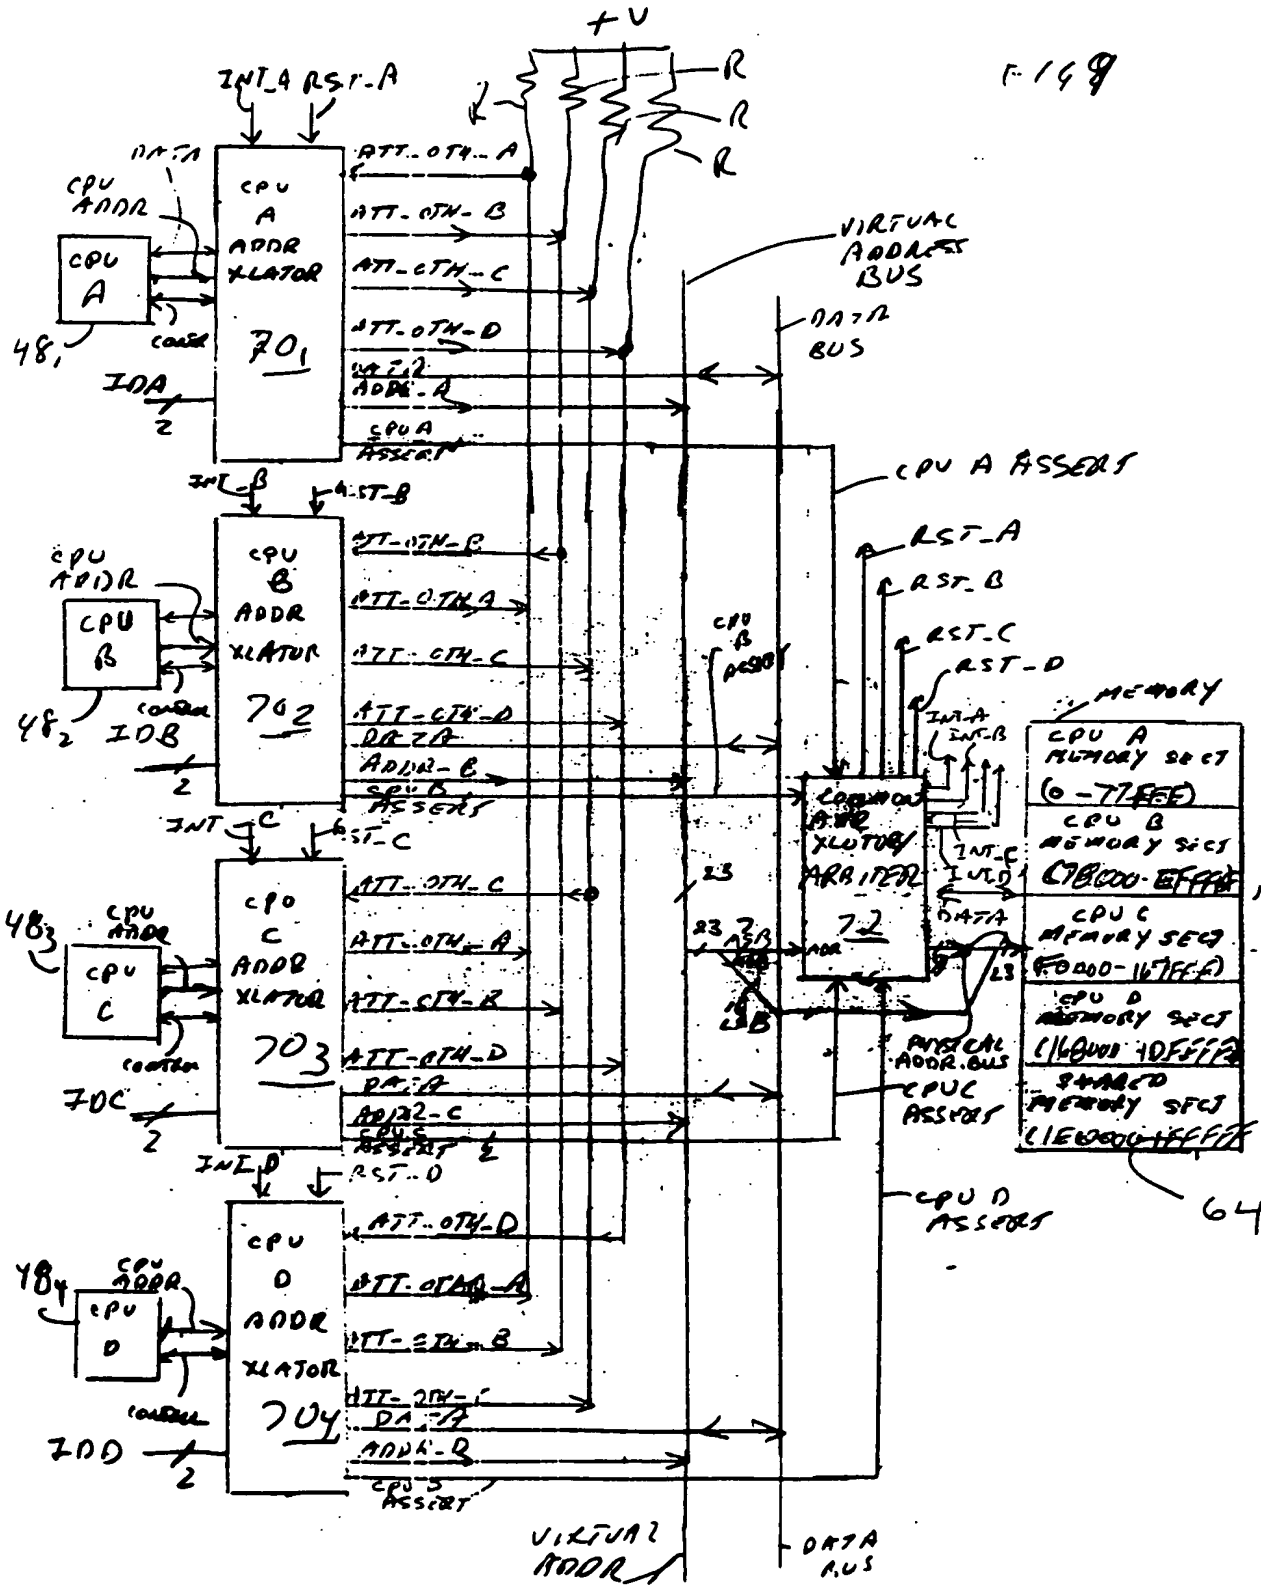 +V
INT_A RST_A
R
R
R
R
DATA
CPU
ADDR
CPU
A
CONTR
48₁
IDA
2
CPU
A
ADDR
XLATOR
70₁
ATT-OTH-A
ATT-OTH-B
ATT-OTH-C
ATT-OTH-D
ADDR-A
CPU A
ASSERT
VIRTUAL
ADDRESS
BUS
DATA
BUS
CPU A ASSERT
INT_B
RST_B
CPU
ADDR
CPU
B
48₂
CONTROL
IDB
2
CPU
B
ADDR
XLATOR
70₂
ATT-OTH-B
ATT-OTH-A
ATT-OTH-C
ATT-OTH-D
DATA
ADDR-B
CPU B
ASSERT
CPU
B
ASSERT
RST_A
RST_B
RST_C
RST_D
INT_A
INT_B
INT_C
INT_D
COMMON
ADDR
XLATOR/
ARBITER
72
ADR
DATA
23
23
23
MSB
LSB
PHYSICAL
ADDR. BUS
MEMORY
CPU A
MEMORY SECT
(0-77FFF)
CPU B
MEMORY SECT
(78000-EFFFF)
CPU C
MEMORY SECT
(F0000-167FFF)
CPU D
MEMORY SECT
(168000-1DFFFF)
SHARED
MEMORY SECT
(1E0000-1FFFFF)
64
INT_C
RST_C
CPU
ADDR
48₃
CPU
C
CONTROL
IDC
2
CPU
C
ADDR
XLATOR
70₃
ATT-OTH-C
ATT-OTH-A
ATT-OTH-B
ATT-OTH-D
DATA
ADDR-C
CPU C
ASSERT
CPU C
ASSERT
INT_D
RST_D
CPU
ADDR
48₄
CPU
D
CONTROL
IDD
2
CPU
D
ADDR
XLATOR
70₄
ATT-OTH-D
ATT-OTH-A
ATT-OTH-B
ATT-OTH-C
DATA
ADDR-D
ASSERT
CPU D
ASSERT
VIRTUAL
ADDR
DATA
BUS